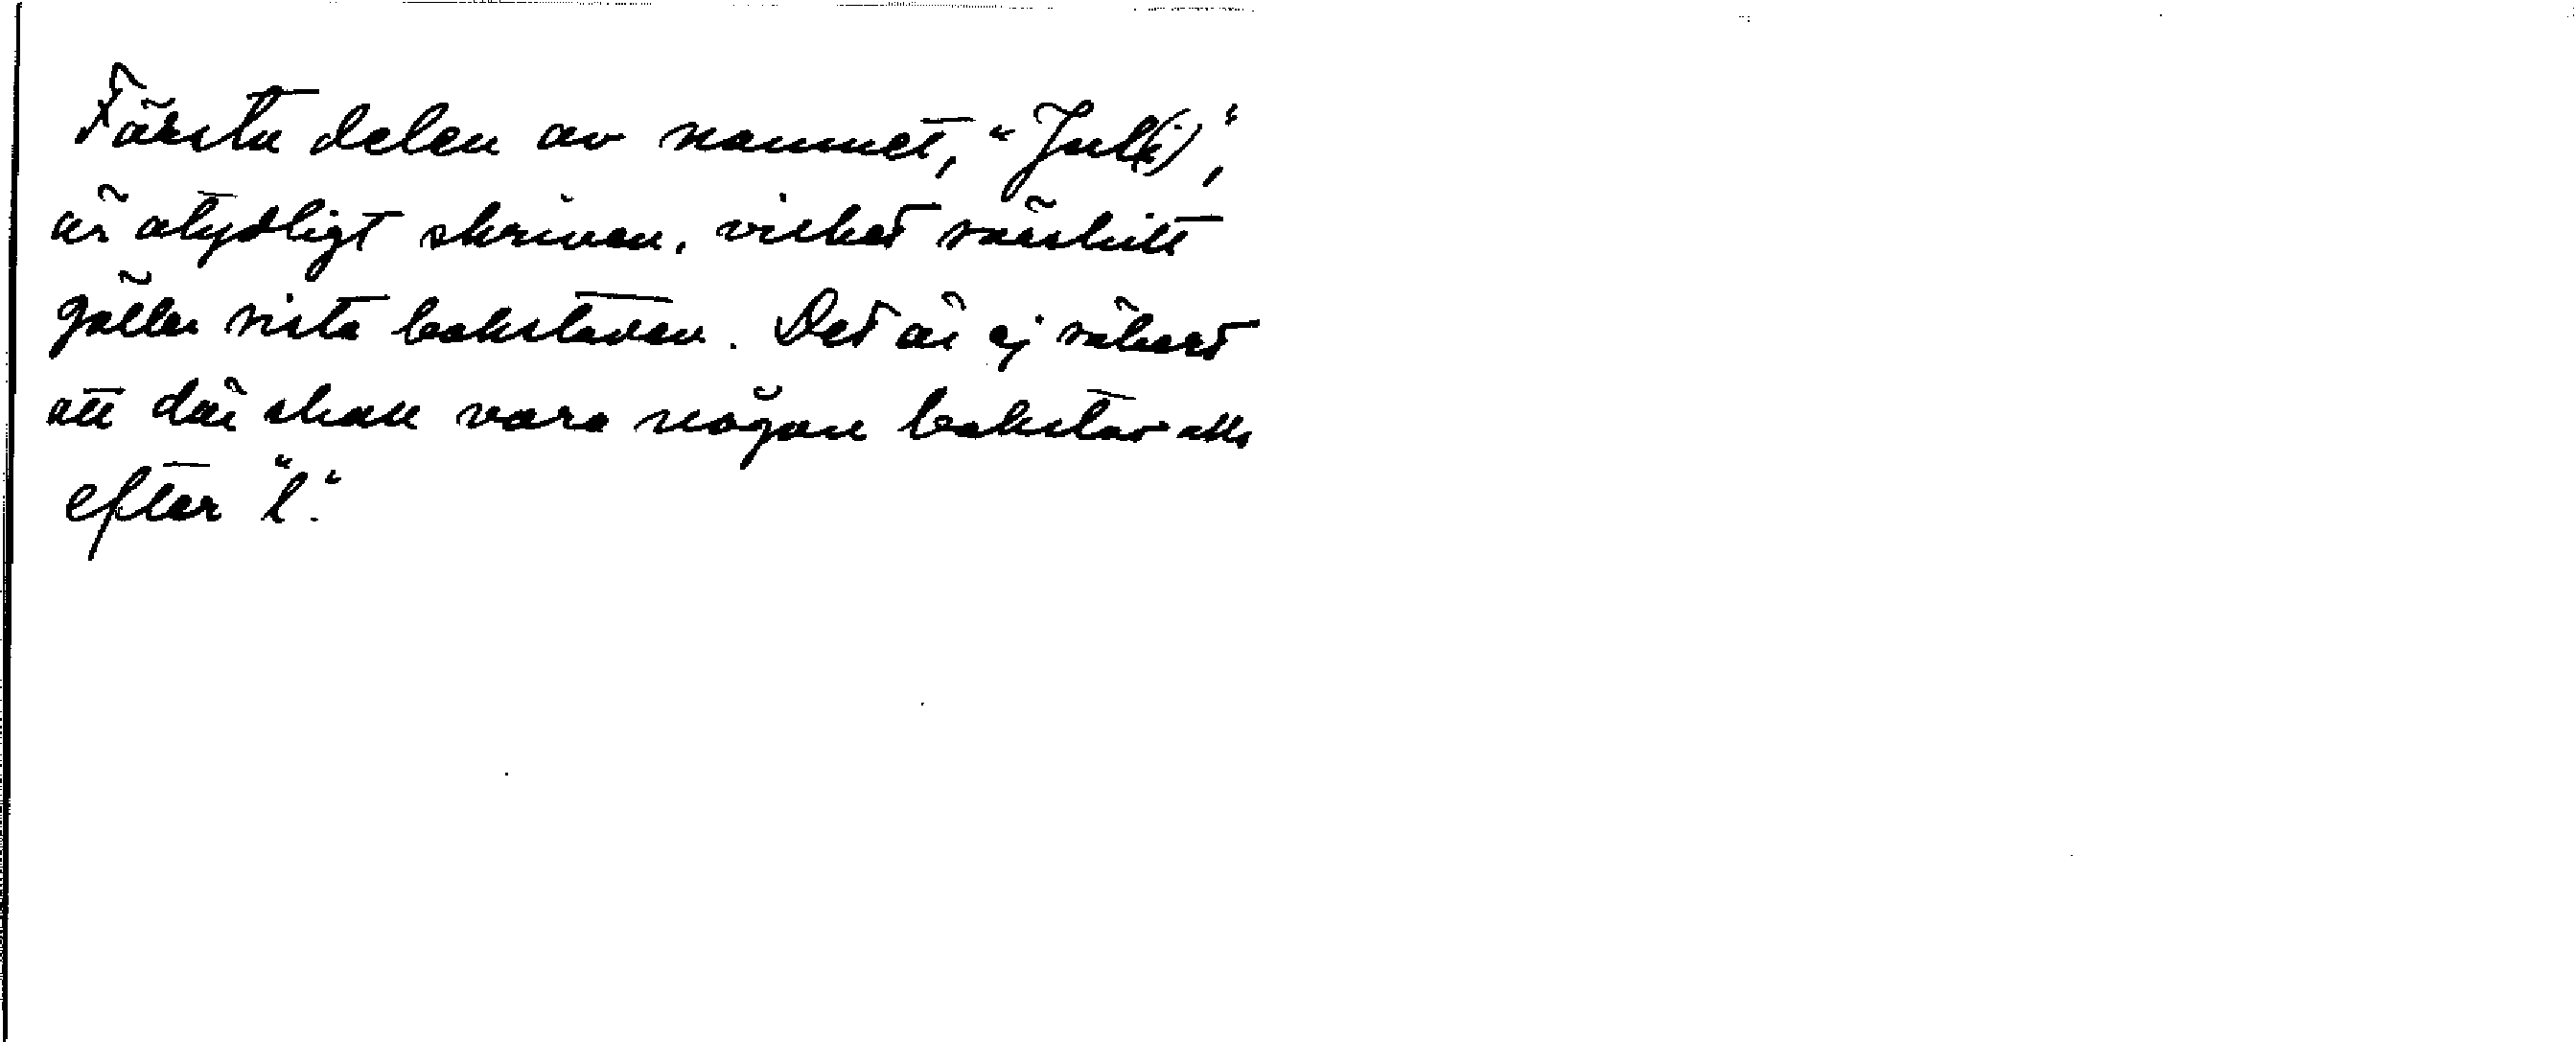 Första delen av namnet, "Jul(i)",
är otydligt skriven, vilket särskilt
gäller sista bokstaven. Det är ej säkert
att där skall vara någon bokstav alls
efter "l".